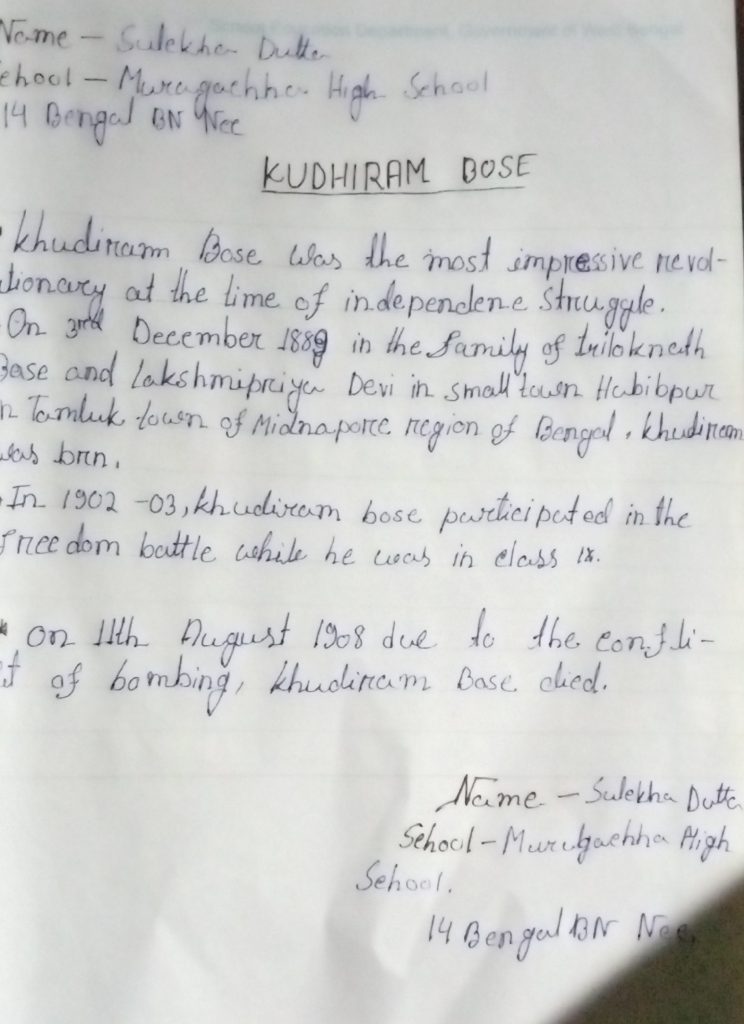 School Education Department, Government of West Bengal
Name - Sulekha Dutta
chool - Muragachha High School
14 Bengal BN Ncc
KUDHIRAM BOSE
Khudiram Bose was the most impressive revol-
utionary at the time of independene struggle.
On 3rd December 1889 in the family of triloknath
Bose and Lakshmipriya Devi in small town Habibpur
n Tamluk town of Midnapore region of Bengal, Khudiram
was brn.
In 1902 -03, khudiram bose participated in the
freedom battle while he was in class ix.
on 11th August 1908 due to the confli-
t of bombing, Khudiram Bose died.
Name - Sulekha Dutta
School - Muragachha High
School.
14 Bengal BN Ncc